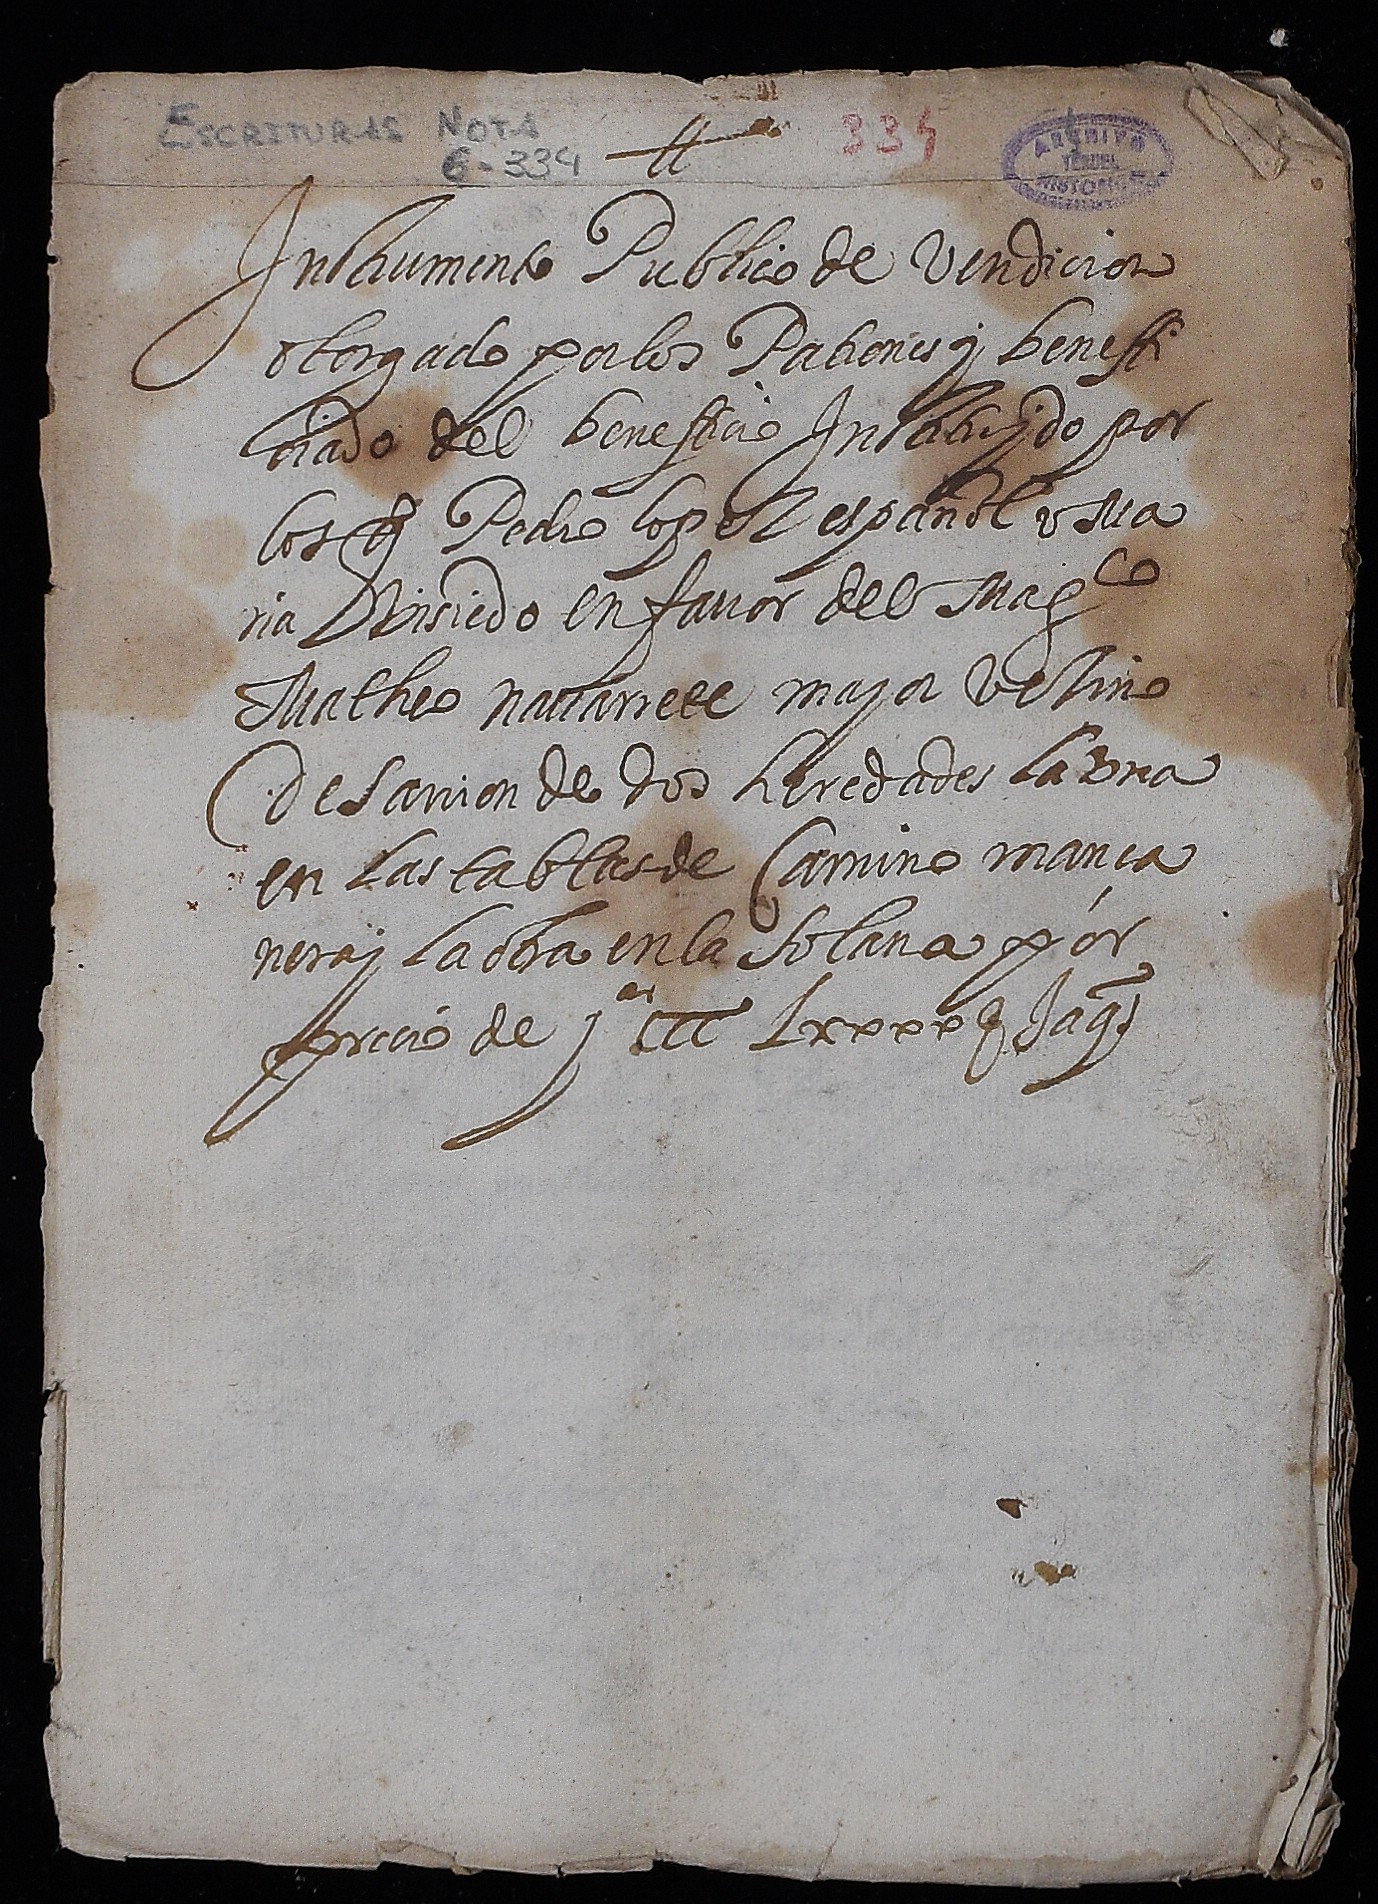 ESCRITURAS NOTS
6-334
335
ARCHIVO
TERUEL
HISTORICO
Instrumento Publico de Vendicion
otorgado por los Patrones y benefi
ciado del beneficio Instituydo por
los qº Pedro lopez español y Ma
ria Monsiedo en fauor del Magco
Matheo nauarrete major Vezino
de Sarrion de dos heredades la Vna
en las tablas de Camino mança
nera y la otra en la Solana por
precio de j CCC Lxxxx ss Jaqs